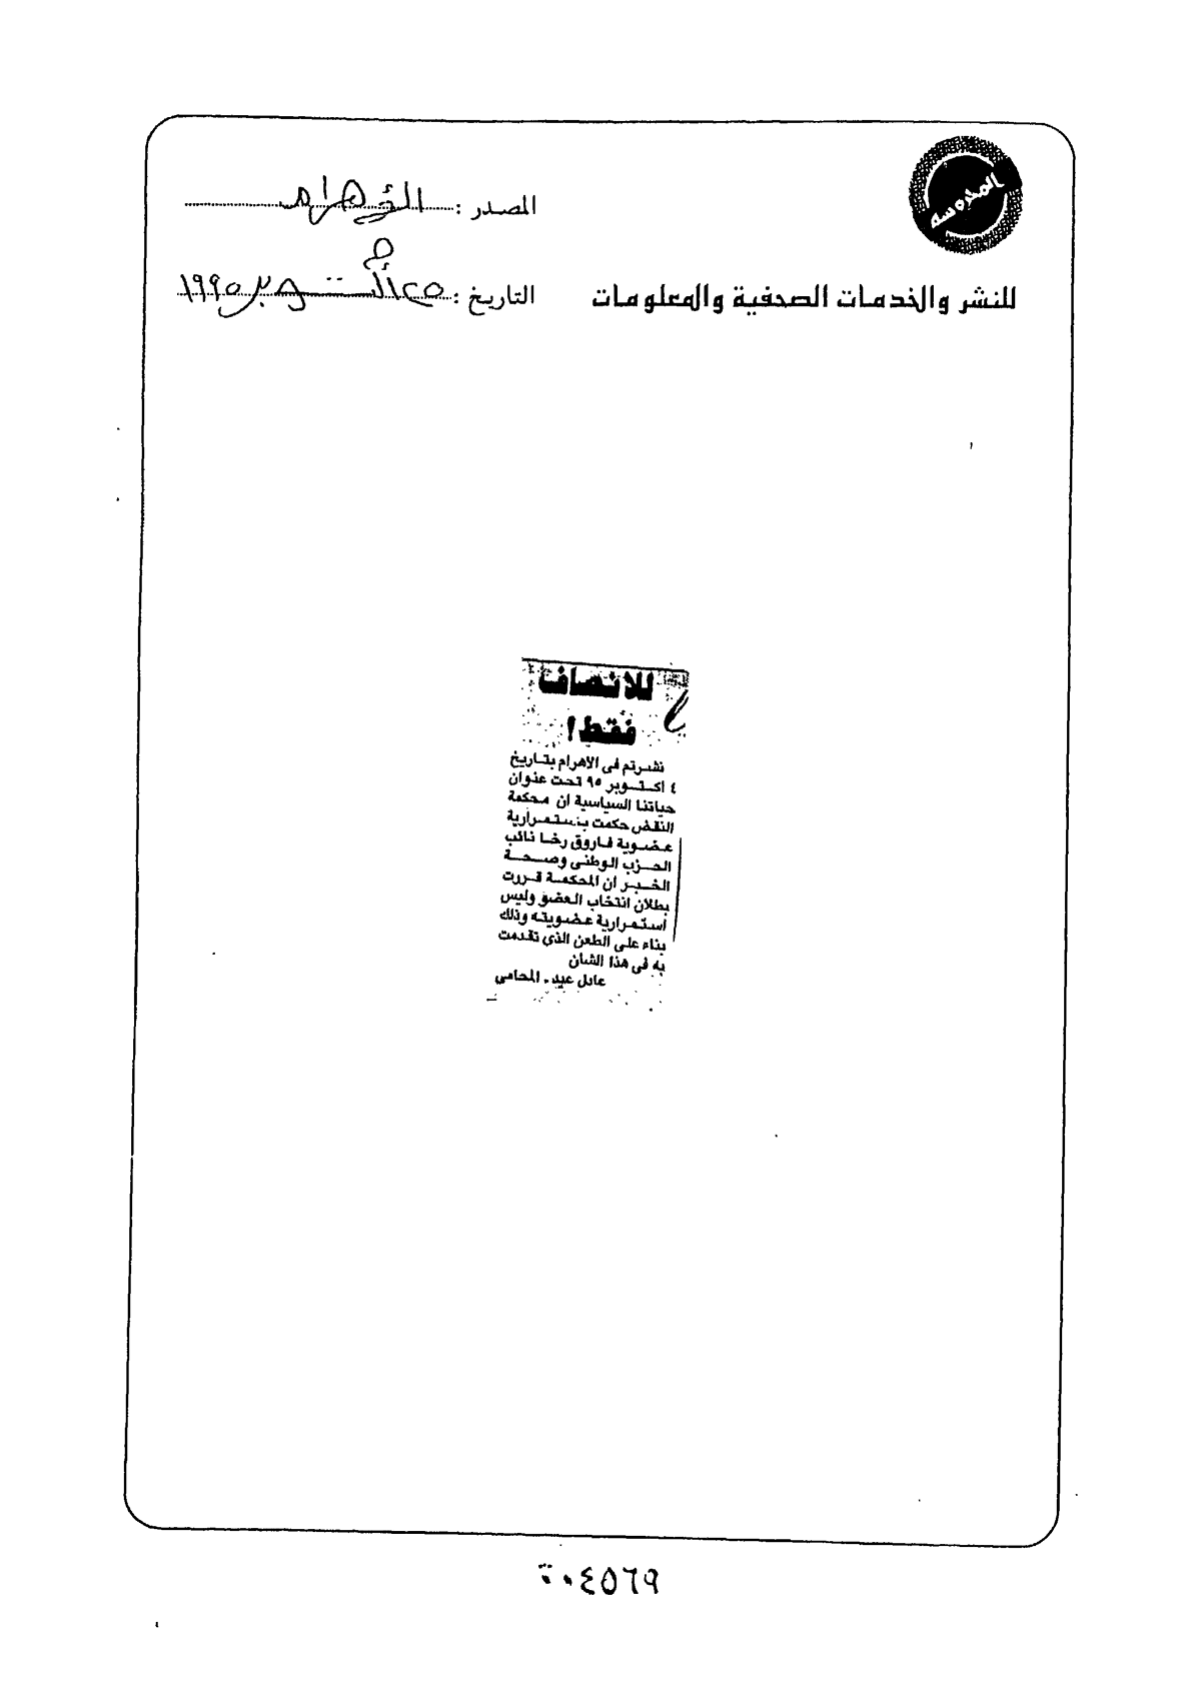 المحروسة
المصدر : الأهرام
للنشر والخدمات الصحفية والمعلومات
التاريخ : ٢٥ أكتوبر ١٩٩٥
للانصاف
فقط !
نشرتم فى الاهرام بتاريخ
٤ اكتوبر ٩٥ تحت عنوان
حياتنا السياسية ان محكمة
النقض حكمت باستمرارية
عضوية فاروق رخا نائب
الحزب الوطنى وصحة
الخبر ان المحكمة قررت
بطلان انتخاب العضو وليس
استمرارية عضويته وذلك
بناء على الطعن الذي تقدمت
به فى هذا الشان
عادل عيد . المحامى
٠٤٥٦٩